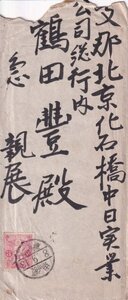 支那北京化石橋中日実業
公司総行内
鶴田豊殿
急 親展